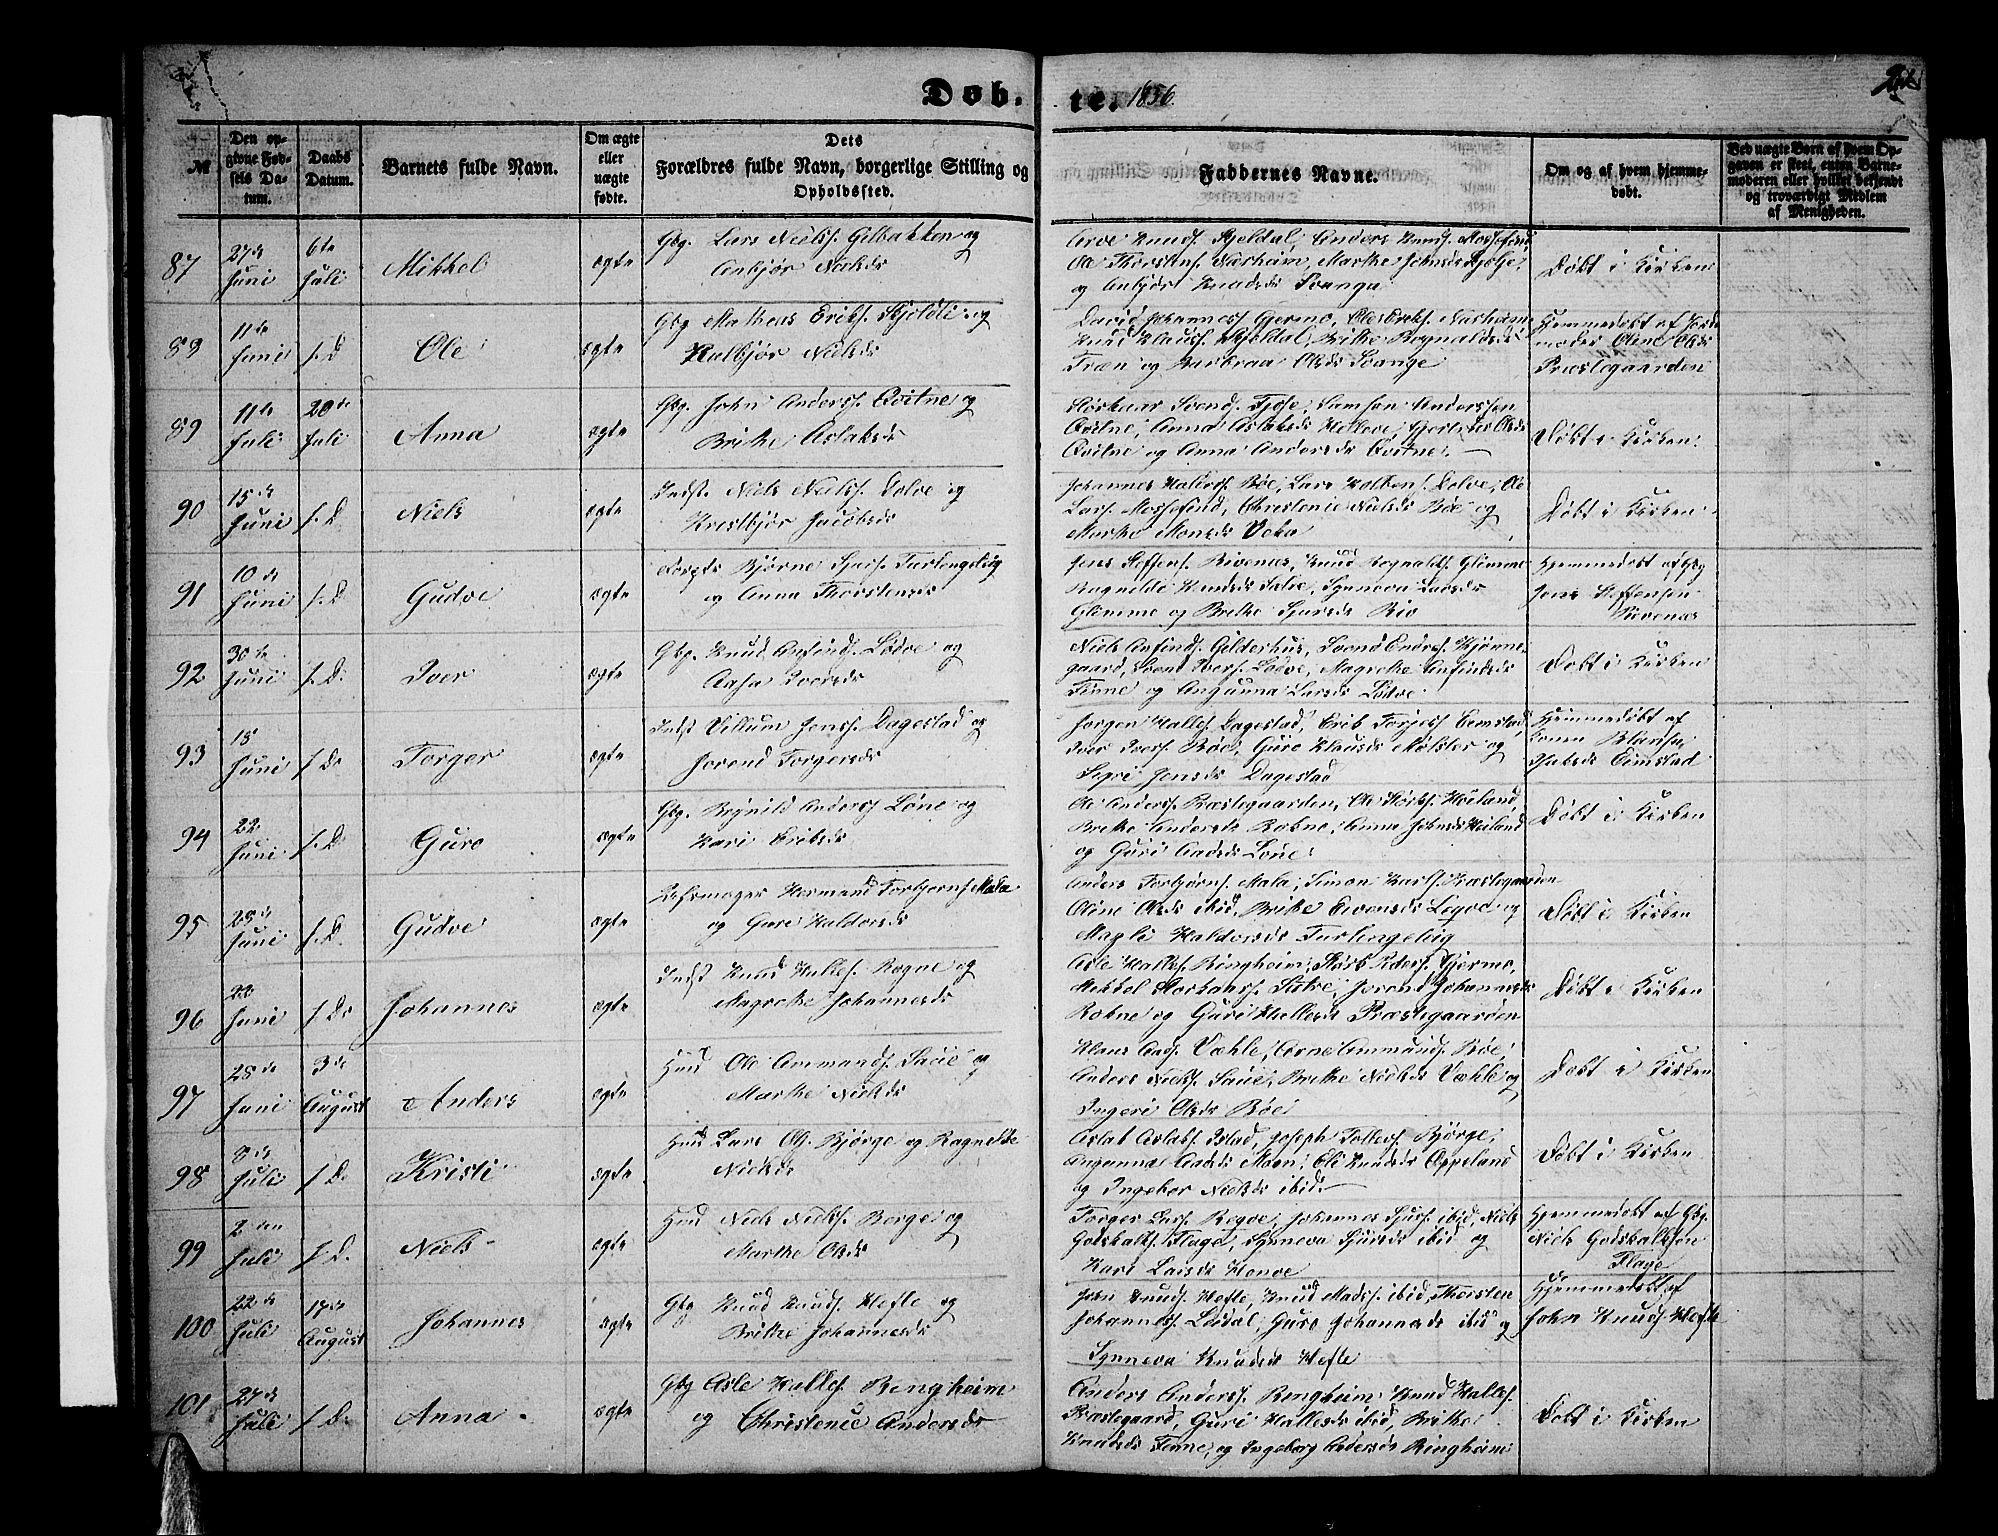 Døb. te. 1856.
№
Den opgivne Fødsels Datum.
Daabs Datum.
Barnets fulde Navn.
Om ægte eller uægte fødte.
Dets Forældres fulde Navn, borgerlige Stilling og Opholdssted.
Faddernes Navne.
Om og af hvem hjemmedøbt.
Ved uægte Børn af hvem Opgaven er skeet, enten Barnemoderen eller hvilket bekjendt og troværdigt Medlem af Menigheden.
87 27de Juni 6te Juli Mikkel ægte
Gbg. Lars Niels. Gilbakken og
Anbjør Nielsd.
Arve Knuds. Kjeldal, Anders Knuds. Mossefind,
Ole Thorstens. Nærheim, Marthe Johnsd.
og Anbjør Knudsd. Svanga
Døbt i Kirken
88 11te Juni s. D. Ole ægte
Gbg Mathias Eriks. og
Nielsd.
David Johanness. Gjermo, Ole Eriks. Nærheim
Knud Klaus. Kjeldal, Brithe Rognaldsd.
Træn og Barbraa Olsd. Svange
Hjemmedøbt af Jordmoder Oline Olsd. Præstegaarden
89 11te Juli 20de Juli Anna ægte
Gbg. John Anders. Qvitne og
Brithe Aslaksd.
Størkaar Svend. Fjose, Samson Anderssen
Qvitne, Anna Aslaksd. Helleve, Gjertrud Olsd.
Qvitne og Anna Andersd. Qvitne.
Døbt i Kirken.
90 15de Juni s. D. Niels ægte
Indst. Niels Niels. Dolve og
Kristbjør Jacobsd.
Johannes Halvors. Bøe, Lars Dolve, Ole
Lars. Mossefind, Christenie Nielsd. Bøe og
Marthe Monsd.
Døbt i Kirken
91 10de Juni s. D. Gudve ægte
Bjørne Sjurs. Tvrlingeliig
og Anna Thorstensd.
Jens Steffens. Rivenæs, Knud Rognalds. Glimme
Ragnilde Knudsd. Sætve, Synneva Larsd.
Glimme og Brithe Sjursd. Rio
Hjemmedøbt af Gbg
Jens Steffensen
Rivenæs
92 30te Juni s. D. Iver ægte
Gbg. Knud Anfinds. Lødve og
Aasa Iversd.
Niels Anfinds. Gilderhus, Svend Endres. Kjønnegaard, Svend Ivers. Lødve, Magrethe Anfindsd.
Finne og Angunna Larsd. Lødve
Døbt i Kirken
93 18 Juni s. D. Torger ægte
Indst Villum Jens. Dagestad og
Jorend Torgersd.
Jørgen Halles. Dagestad, Erik Torjers. Eimstad,
Iver Ivers. Bøe, Guro Klausd. Mølster og
Sigri Jensd. Dagestad
Hjemmedøbt af
Eimstad
94 22 Juni s. D. Guro ægte
Gbg. Anders. Løne og
Kari Eriksd.
Ole Anders. Præstegaarden, Ole Størks. Høiland
Brithe Andersd. Rokne, Anna Johnsd. Høiland
og Guri Aadsd. Løne.
Døbt i Kirken
95 28de Juni s. D. Gudve ægte
Hermand Torbjørns. Mala
og Guri Haldorsd.
Anders Torbjørns. Mala, Simon Karls. Præstegaarden
Oline Olsd. ibid, Brithe Eivensd. Liqve og
Magli Haldorsd. Tvrlingeliig
Døbt i Kirken
96 22 Juni s. D. Johannes ægte
Indst Knud Halles. Rogne og
Magrethe Johannesd.
Asle Halles. Ringheim, Størk Peders. Gjermo,
Mikkel Størkaars. Sætve, Jorend Johannesd.
Rokne og Guri Hellesd. Præstegaarden
Døbt i Kirken
97 28de Juni 3de August Anders ægte
Huusmd Ole Ammunds. Saue og
Marthe Nielsd.
Klaus Aads. Væhle, Arne Ammunds. Bøe,
Anders Niels. Saue, Brithe Nielsd. Væhle og
Ingeri Olsd. Bøe
Døbt i Kirken
98 8de Juli s. D. Kristi ægte
Hmd Lars Ols. Bjørge og Ragnilde
Nielsd.
Aslak Aslaks. Istad, Joseph Tolles. Bjørge,
Angunna Aadsd. Moen, Eli Knudsd. Oppeland
og Ingebor Nielsd. ibid.
Døbt i Kirken
99 2den Juli s. D. Niels ægte
Hmd Niels Niels. Berge og
Marthe Olsd.
Torger Lars. Reqve, Johannes Sjurs. ibid, Niels
Godskalks. Flage, Synneva Sjursd. ibid og
Kari Larsd. Honve
Hjemmedøbt af Gbg.
Niels Godskalksen
Flage
100 22de Juli 17de August Johannes ægte
Gbg Knud Knuds. Hefte og
Brithe Johannesd.
John Knuds. Hefte, Knud Mads. ibid, Thorsten
Johannes. Lødal, Guro Johannesd. ibid og
Synneva Knudsd. Hefte
Hjemmedøbt af
John Knuds. Hefte
101 27de Juli s. D. Anna ægte
Gbg Asle Halles. Ringheim
og Christence Andersd.
Anders Anders. Ringheim, Knud Halles.
Præstegaard, Guri Hallesd. ibid, Brithe
Knudsd. Finne, og Ingeborg Andersd. Ringheim
Døbt i Kirken